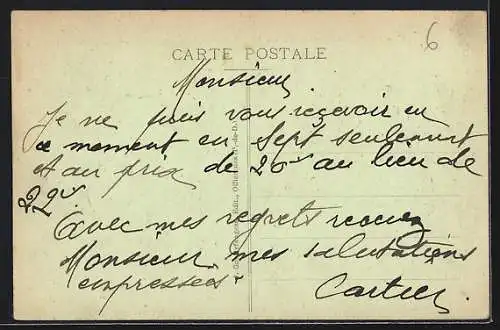 6
CARTE POSTALE
Monsieur
Je ne puis vous reçevoir en
ce moment en Sept seulement
et au prix de 26 au lieu de
Avec mes regrets recevez
Monsieur mes salutations
empressées
Cartier